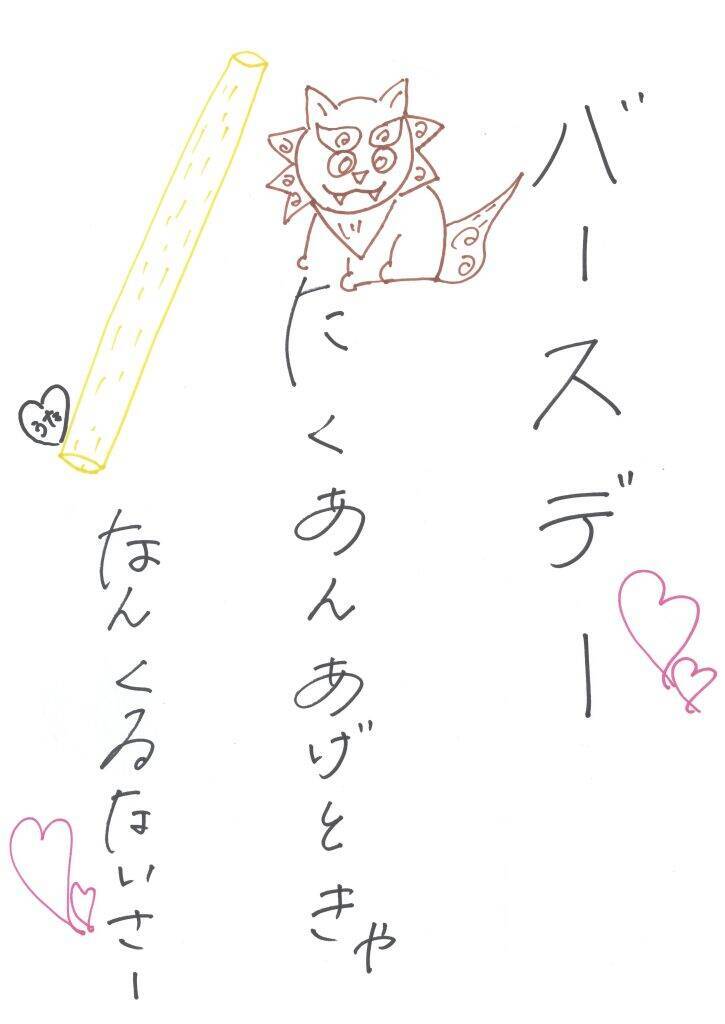 バースデー
たくあんあげときゃ
なんくるないさー